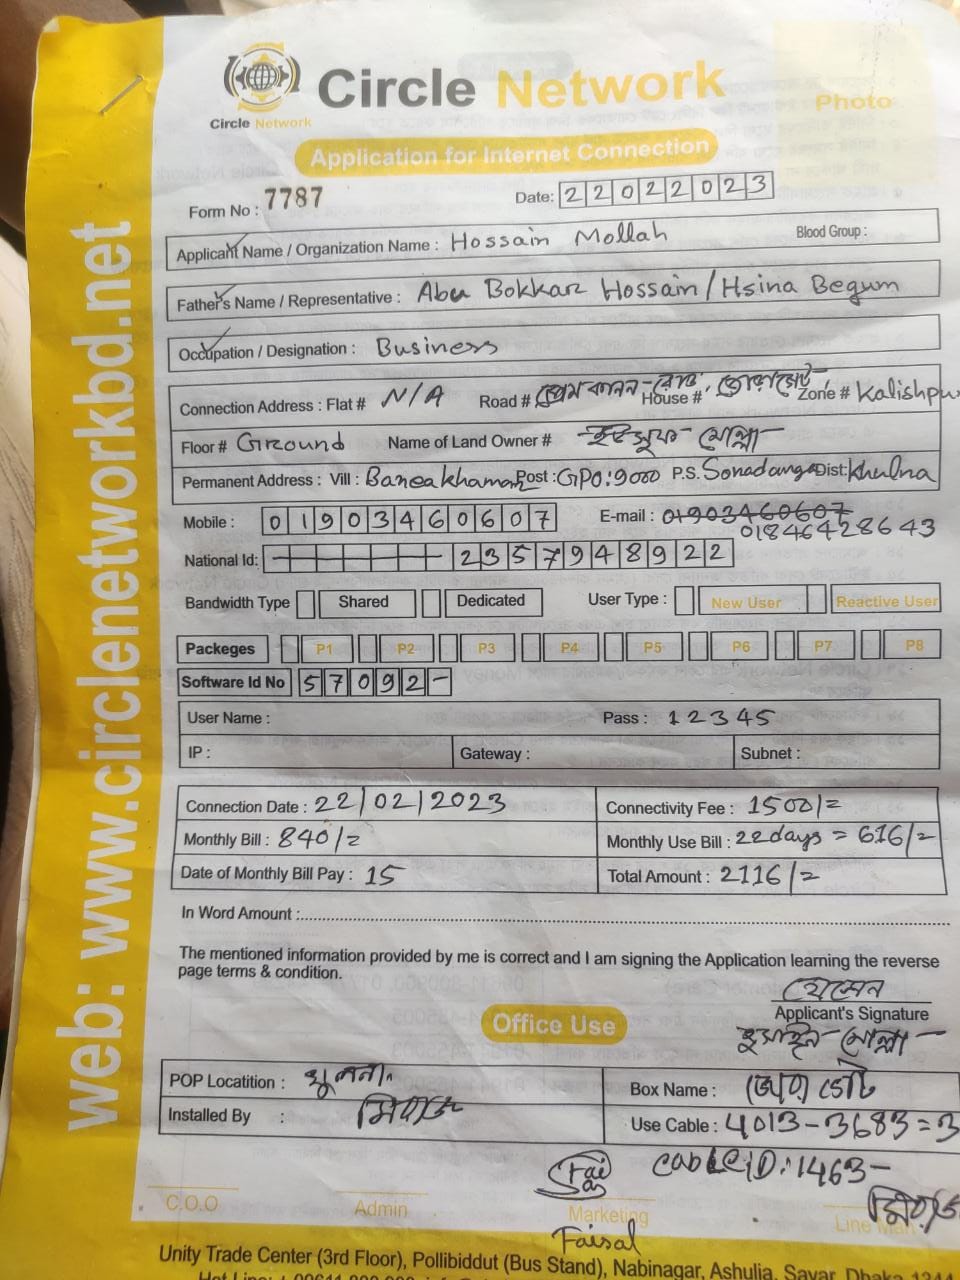 Circle Network
Circle Network
Photo
Application for Internet Connection
Form No : 7787
Date: 22022023
Applicant Name / Organization Name : Hossain Mollah Blood Group :
Father's Name / Representative : Abu Bokkar Hossain / Hsina Begum
Occupation / Designation : Business
Connection Address : Flat # N/A Road # রোড, House # Zone # Kalishpur
Floor # Ground Name of Land Owner # ইউসুফ মোল্লা
Permanent Address : Vill : Baneakhamar Post : GPO:9000 P.S. Sonadanga Dist: Khulna
Mobile : 01903460607 E-mail : 01903460607
01846428643
National Id: 2357948922
Bandwidth Type Shared Dedicated User Type : New User Reactive User
Packeges P1 P2 P3 P4 P5 P6 P7 P8
Software Id No 57092-
User Name : Pass : 12345
IP : Gateway : Subnet :
Connection Date : 22/02/2023 Connectivity Fee : 1500/=
Monthly Bill : 840/= Monthly Use Bill : 22days = 616/=
Date of Monthly Bill Pay : 15 Total Amount : 2116/=
In Word Amount :
The mentioned information provided by me is correct and I am signing the Application learning the reverse
page terms & condition.
হোসেন
Applicant's Signature
Office Use
হুসাইন মোল্লা
POP Locatition : খুলনা Box Name :
Installed By : Use Cable : 4013-3683=3
Cable ID: 1463-
C.O.O Admin Marketing Line Man
Faisal
Unity Trade Center (3rd Floor), Pollibiddut (Bus Stand), Nabinagar, Ashulia, Savar, Dhaka-1344
web: www.circlenetworkbd.net